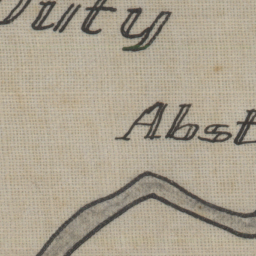 Duty
Abst